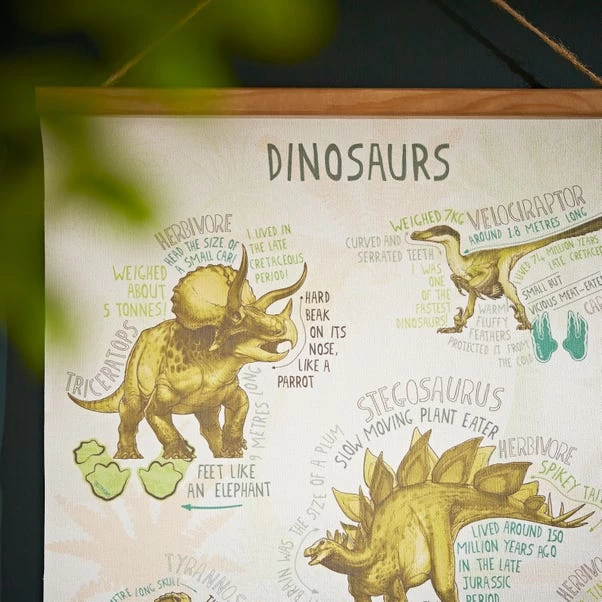 DINOSAURS
HERBIVORE
HEAD THE SIZE OF
A SMALL CAR!
I LIVED IN
THE LATE
CRETACEOUS
PERIOD!
WEIGHED
ABOUT
5 TONNES!
TRICERATOPS
HARD
BEAK
ON ITS
NOSE,
LIKE A
PARROT
9 METRES LONG
FEET LIKE
AN ELEPHANT
WEIGHED 7KG
VELOCIRAPTOR
AROUND 1.8 METRES LONG
CURVED AND
SERRATED TEETH
I WAS
ONE
OF THE
FASTEST
DINOSAURS!
OVER 74 MILLION YEARS
LATE CRETACEO
SMALL BUT
VICIOUS MEAT-EATE
CAR
WARM
FLUFFY
FEATHERS
PROTECTED IT FROM
THE COLD
STEGOSAURUS
SLOW MOVING PLANT EATER
HERBIVORE
SPIKEY TAI
BRAIN WAS THE SIZE OF A PLUM
LIVED AROUND 150
MILLION YEARS AGO
IN THE LATE
JURASSIC
PERIOD
TYRANNOS
METRE LONG SKULL